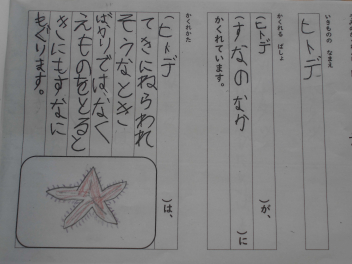 いきものの なまえ
ヒトデ
かくれる ばしょ
(ヒトデ)が、
(すなのなか)に
かくれています。
かくれかた
(ヒトデ)は、
てきにねらわれ
そうなとき
ばかりではなく
えものをとると
きにもすなに
もぐります。